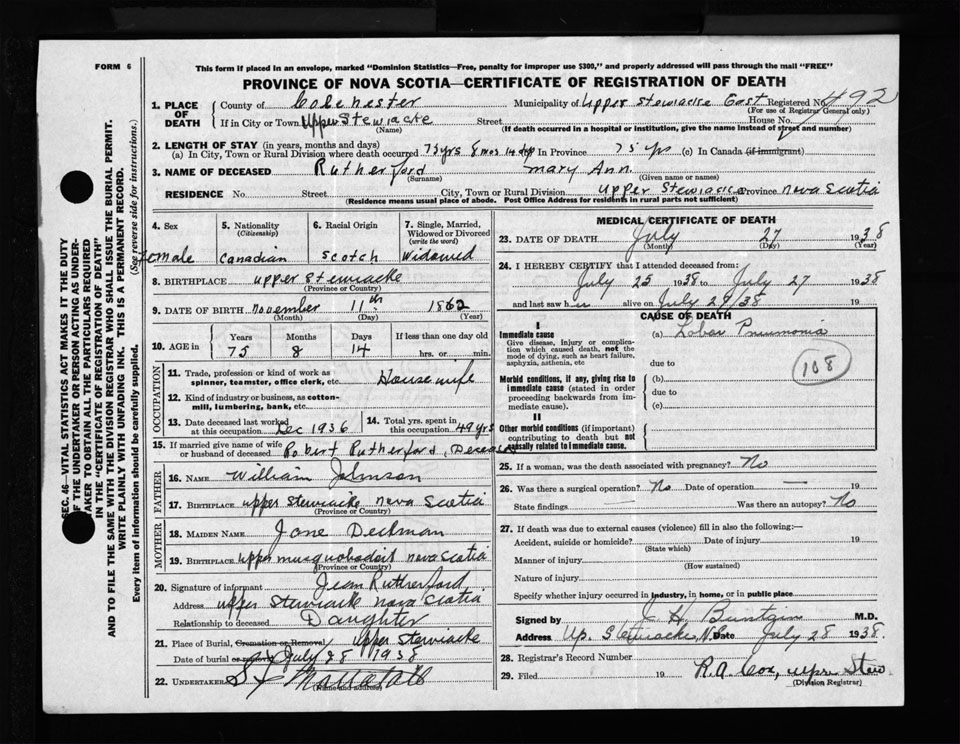 FORM 6
This form if placed in an envelope, marked "Dominion Statistics—Free, penalty for improper use $300," and properly addressed will pass through the mail "FREE"
PROVINCE OF NOVA SCOTIA—CERTIFICATE OF REGISTRATION OF DEATH
SEC. 46—VITAL STATISTICS ACT MAKES IT THE DUTY
OF THE UNDERTAKER OR PERSON ACTING AS UNDER-
TAKER TO OBTAIN ALL THE PARTICULARS REQUIRED
IN THE "CERTIFICATE OF REGISTRATION OF DEATH"
AND TO FILE THE SAME WITH THE DIVISION REGISTRAR WHO SHALL ISSUE THE BURIAL PERMIT.
WRITE PLAINLY WITH UNFADING INK. THIS IS A PERMANENT RECORD.
Every item of information should be carefully supplied. (See reverse side for instructions.)
1. PLACE OF DEATH
County of Colchester Municipality of Upper Stewiacke East Registered No. 492
(For use of Registrar General only)
If in City or Town Upper Stewiacke Street House No.
(Name) (If death occurred in a hospital or institution, give the name instead of street and number)
2. LENGTH OF STAY (in years, months and days)
(a) In City, Town or Rural Division where death occurred 75 yrs 8 mos 14 dys In Province 75 yrs (c) In Canada (if immigrant)
3. NAME OF DECEASED Rutherford Mary Ann
(Surname) (Given name or names)
RESIDENCE No. Street City, Town or Rural Division Upper Stewiacke Province Nova Scotia
(Residence means usual place of abode. Post Office Address for residents in rural parts not sufficient)
4. Sex 5. Nationality (Citizenship) 6. Racial Origin 7. Single, Married, Widowed or Divorced (write the word)
Female Canadian Scotch Widowed
8. BIRTHPLACE Upper Stewiacke
(Province or Country)
9. DATE OF BIRTH November 11th 1862
(Month) (Day) (Year)
10. AGE in Years Months Days If less than one day old
75 8 14 hrs. or min.
OCCUPATION
11. Trade, profession or kind of work as spinner, teamster, office clerk, etc. Housewife
12. Kind of industry or business, as cotton-mill, lumbering, bank, etc.
13. Date deceased last worked at this occupation Dec 1936 14. Total yrs. spent in this occupation 49 yrs
15. If married give name of wife or husband of deceased Robert Rutherford, Deceased
FATHER
16. NAME William Johnson
17. BIRTHPLACE Upper Stewiacke Nova Scotia
(Province or Country)
MOTHER
18. MAIDEN NAME Jane
19. BIRTHPLACE Upper Musquodoboit Nova Scotia
(Province or Country)
20. Signature of informant Jean Rutherford
Address Upper Stewiacke Nova Scotia
Relationship to deceased Daughter
21. Place of Burial, Cremation or Removal Upper Stewiacke
Date of burial or removal July 28 1938
22. UNDERTAKER
(Name and address)
MEDICAL CERTIFICATE OF DEATH
23. DATE OF DEATH July 27 1938
(Month) (Day) (Year)
24. I HEREBY CERTIFY that I attended deceased from:
July 25 1938 to July 27 1938
and last saw h alive on July 27/38 19
CAUSE OF DEATH
I
Immediate cause (a) Lobar Pneumonia
Give disease, injury or complication which caused death, not the mode of dying, such as heart failure, asphyxia, asthenia, etc
due to
108
Morbid conditions, if any, giving rise to immediate cause (stated in order proceeding backwards from immediate cause).
(b)
due to
(c)
II
Other morbid conditions (if important) contributing to death but not causally related to immediate cause.
25. If a woman, was the death associated with pregnancy? No
26. Was there a surgical operation? No Date of operation —
State findings Was there an autopsy? No
27. If death was due to external causes (violence) fill in also the following:—
Accident, suicide or homicide? Date of injury 19
(State which)
Manner of injury
(How sustained)
Nature of injury
Specify whether injury occurred in industry, in home, or in public place
Signed by J H Buntain M.D.
Address Up. Stewiacke, N.S. Date July 28 1938.
28. Registrar's Record Number
29. Filed 19 R.A. Cox, Upr. Stew.
(Division Registrar)